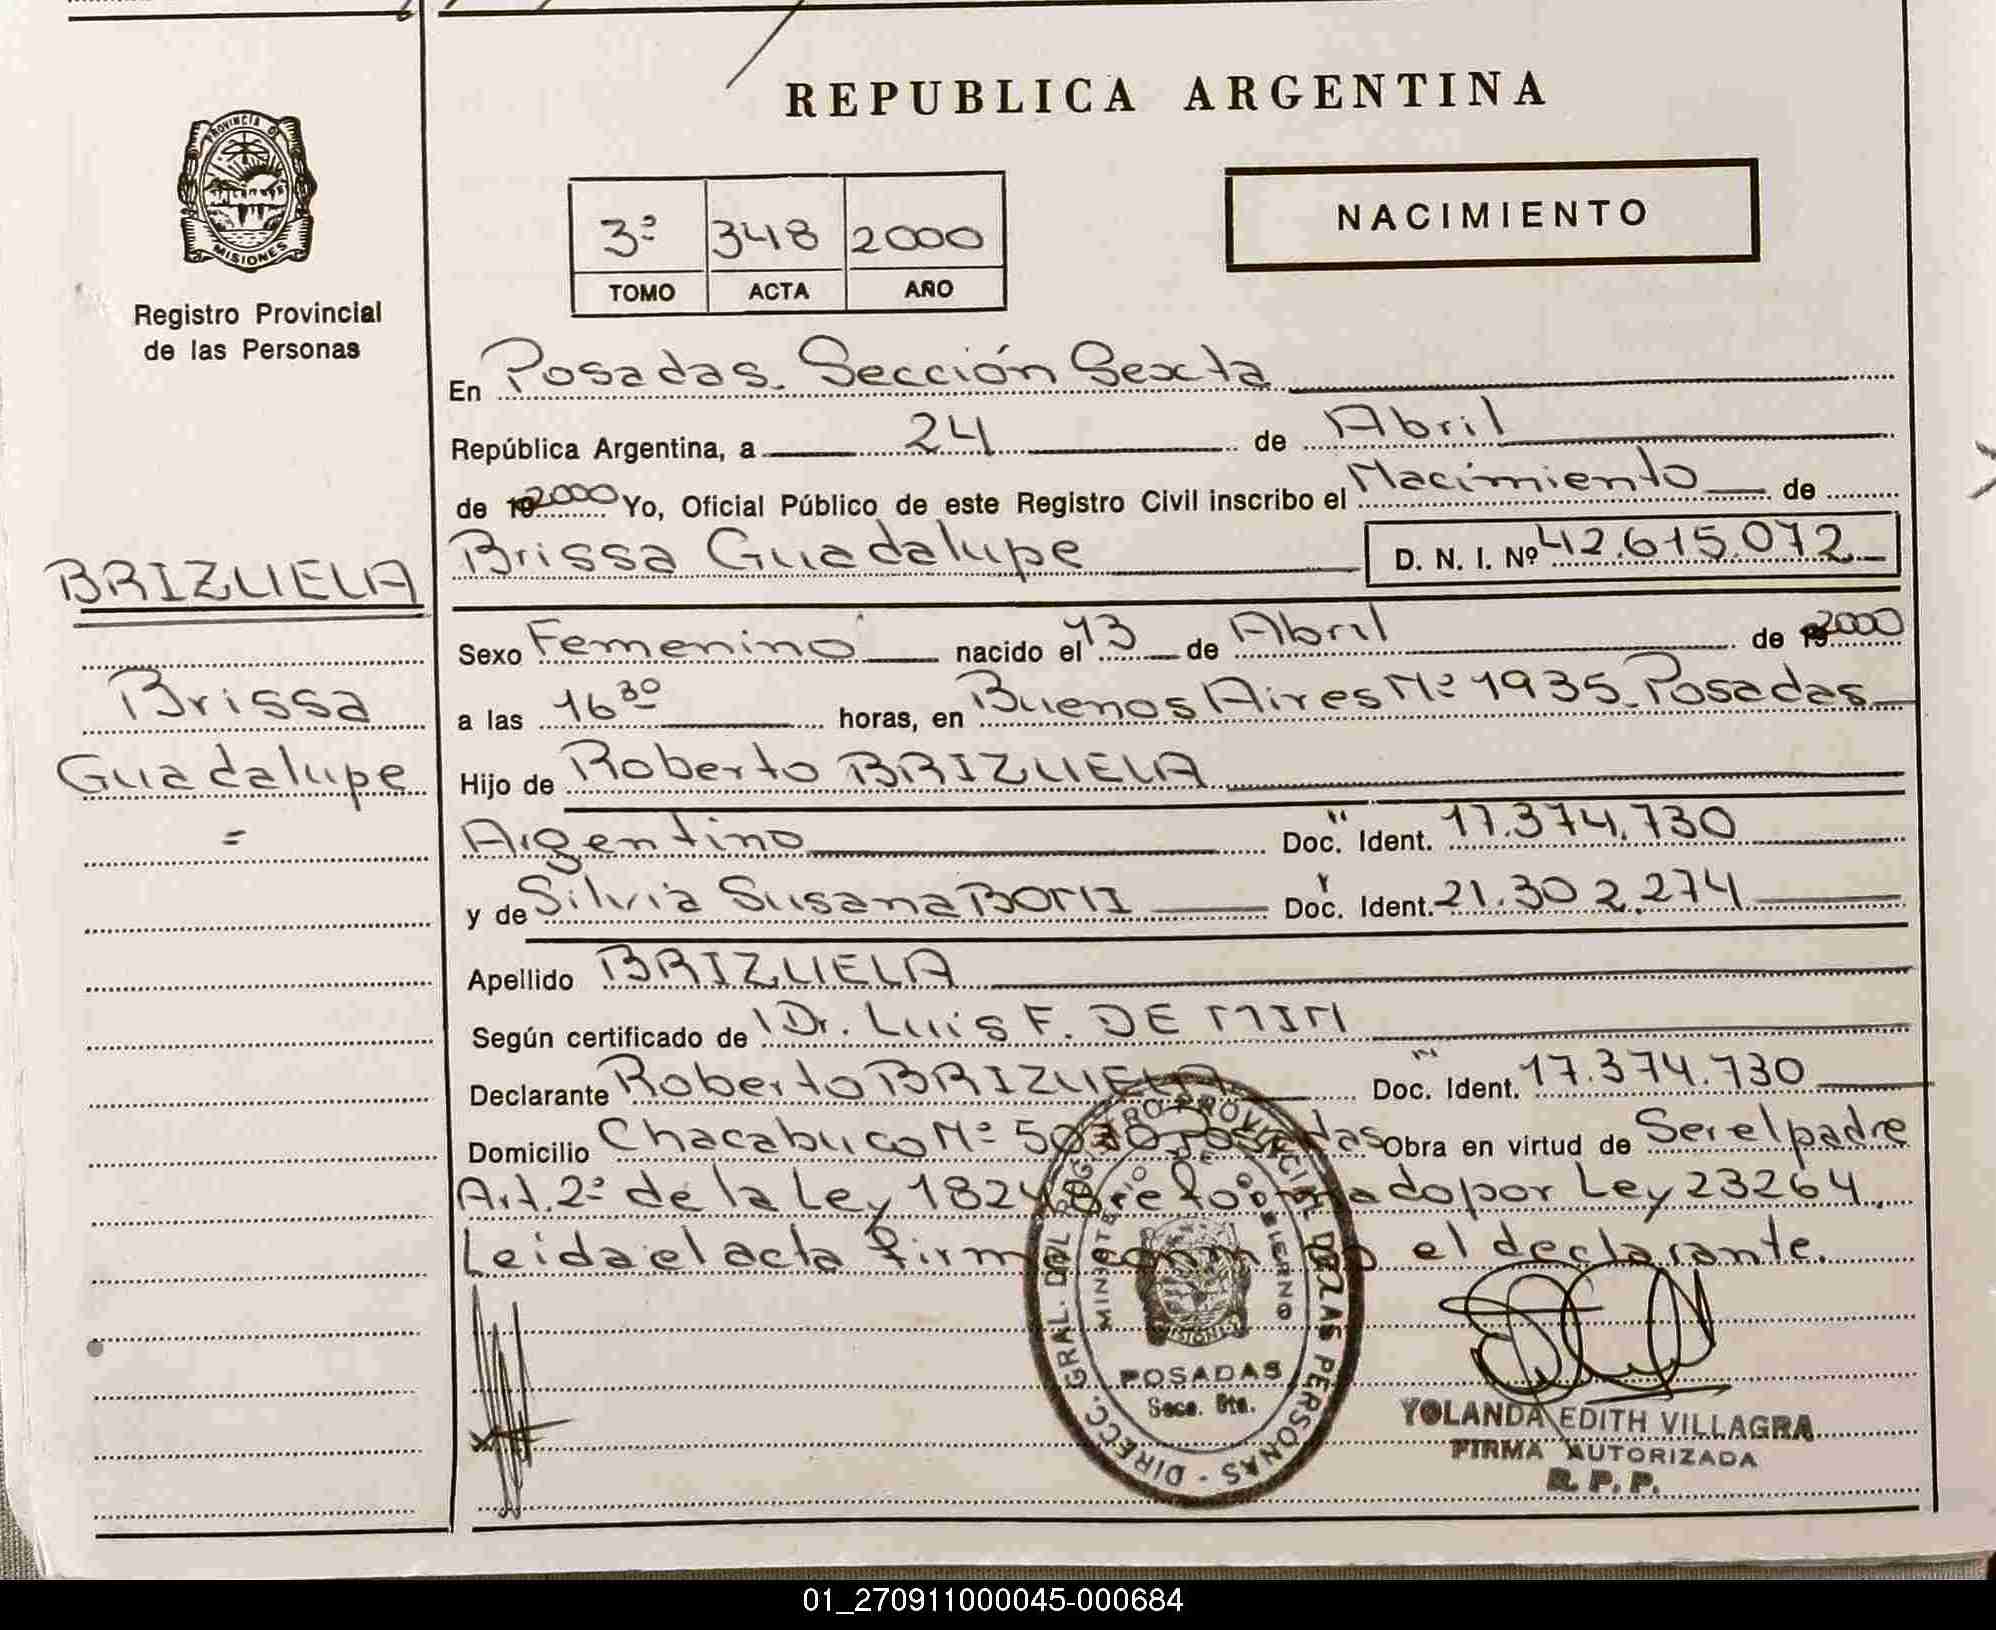 REPUBLICA ARGENTINA
PROVINCIA DE
MISIONES
Registro Provincial
de las Personas
NACIMIENTO
3º 348 2000
TOMO ACTA AÑO
En Posadas. Sección Sexta
República Argentina, a 24 de Abril
de 192000 Yo, Oficial Público de este Registro Civil inscribo el Nacimiento de
Brissa Guadalupe D. N. I. Nº 42.615.072
BRIZUELA
Brissa
Guadalupe
=
Sexo Femenino nacido el 13 de Abril de 192000
a las 16 30 horas, en Buenos Aires Nº 1935. Posadas
Hijo de Roberto BRIZUELA
Argentino Doc. Ident. 17.374.730
y de Silvia Susana BONI Doc. Ident. 21.302.274
Apellido BRIZUELA
Según certificado de Dr. Luis F. DE MIN
Declarante Roberto BRIZUELA Doc. Ident. 17.374.730
Domicilio Chacabuco Nº 5030 Posadas Obra en virtud de Ser el padre
Art. 2º de la Ley 18248 reformado por Ley 23264.
Leida el acta firma conmigo el declarante.
DIRECC. GRAL. DEL REGISTRO PROVINCIAL DE LAS PERSONAS
MINISTERIO DE GOBIERNO
MISIONES
POSADAS
Secc. 6ta.
YOLANDA EDITH VILLAGRA
FIRMA AUTORIZADA
R. P. P.
01_270911000045-000684